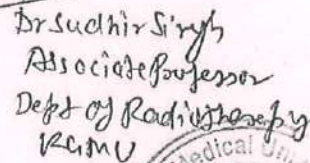 Dr Sudhir Singh
Associate Professor
Dept of Radiotherapy
KGMU
Medical Un